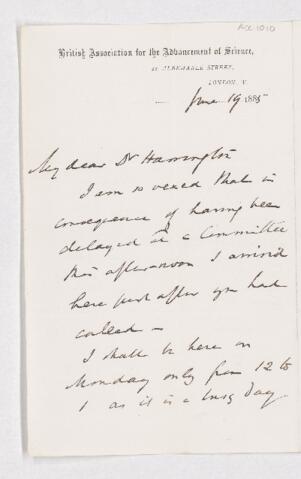 Acc 1010
British Association for the Advancement of Science,
22 ALBEMARLE STREET,
LONDON, W.
June 19 1885
My dear Dr Harrington
I am so vexed that in
consequence of having been
delayed at a Committee
this afternoon I arrived
here just after you had
called –
I shall be here on
Monday only from 12 to
1 as it is a busy day.